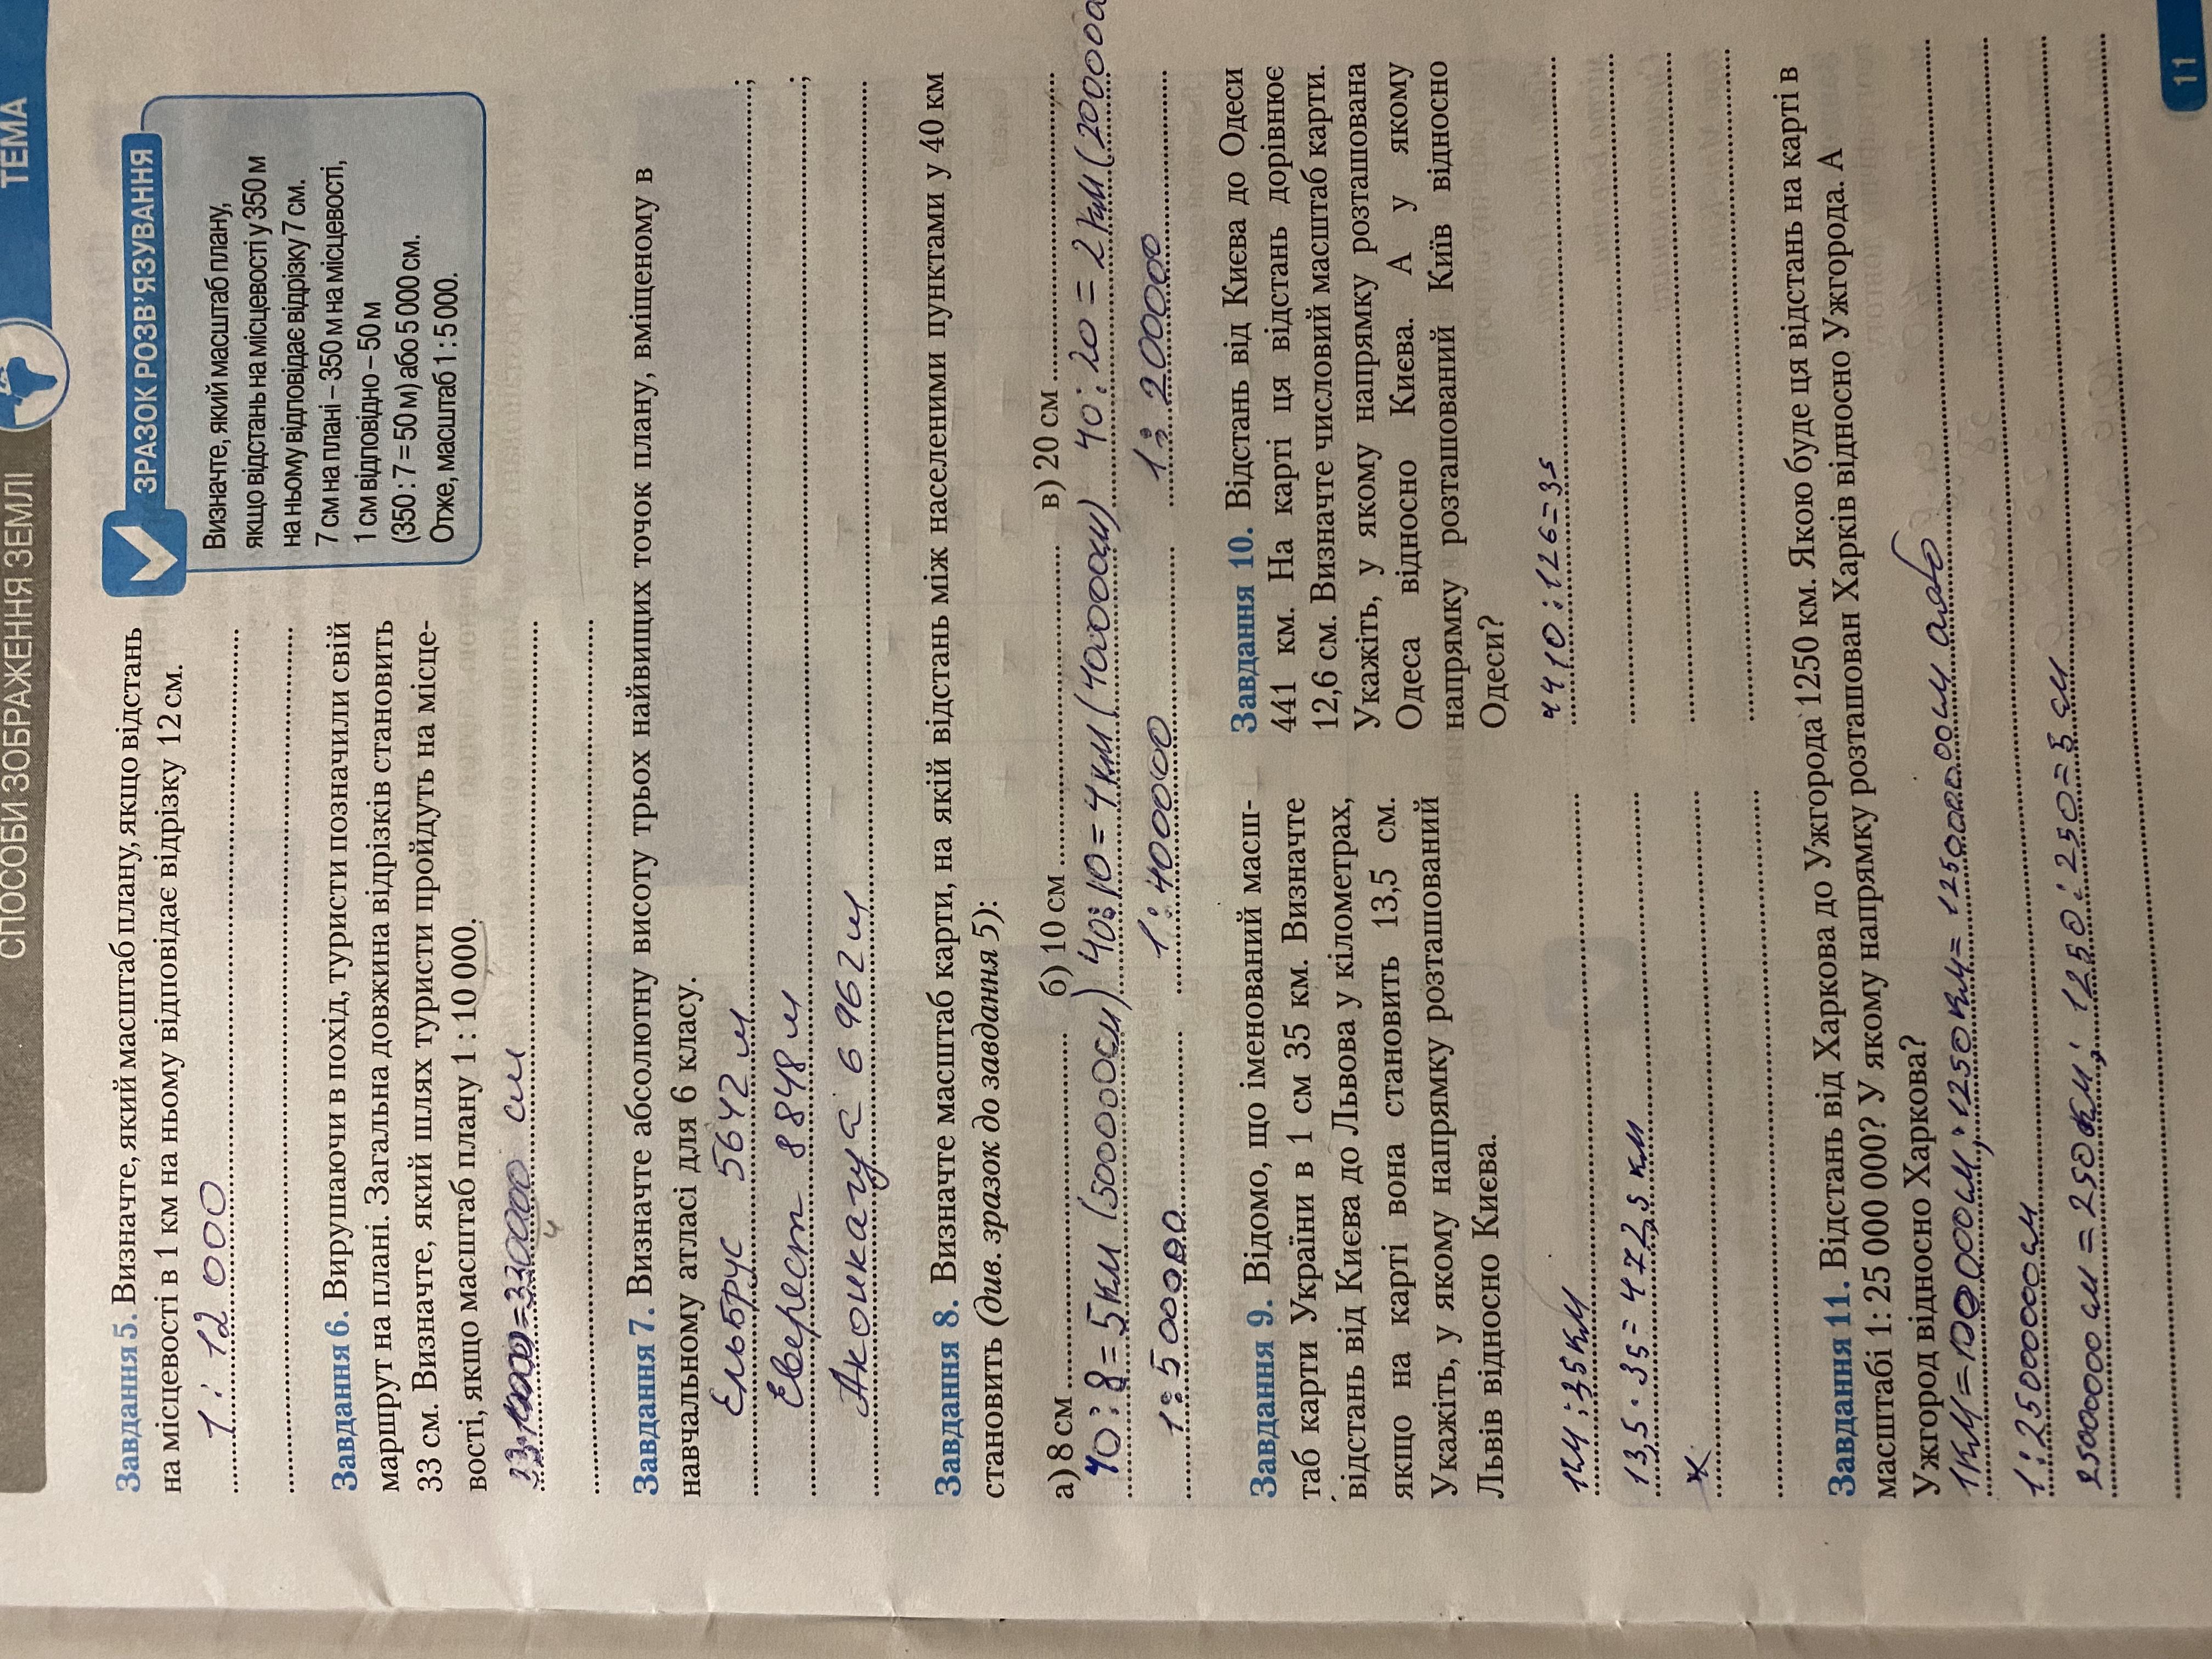 СПОСОБИ ЗОБРАЖЕННЯ ЗЕМЛІ
ТЕМА
Завдання 5. Визначте, який масштаб плану, якщо відстань
на місцевості в 1 км на ньому відповідає відрізку 12 см.
1 : 12 000
ЗРАЗОК РОЗВ'ЯЗУВАННЯ
Визначте, який масштаб плану,
якщо відстань на місцевості у 350 м
на ньому відповідає відрізку 7 см.
7 см на плані – 350 м на місцевості,
1 см відповідно – 50 м
(350 : 7 = 50 м) або 5 000 см.
Отже, масштаб 1 : 5 000.
Завдання 6. Вирушаючи в похід, туристи позначили свій
маршрут на плані. Загальна довжина відрізків становить
33 см. Визначте, який шлях туристи пройдуть на місце-
вості, якщо масштаб плану 1 : 10 000.
см
Завдання 7. Визначте абсолютну висоту трьох найвищих точок плану, вміщеному в
навчальному атласі для 6 класу.
Ельбрус 5642 м ;
Еверест 8848 м ;
6 962 м
Завдання 8. Визначте масштаб карти, на якій відстань між населеними пунктами у 40 км
становить (див. зразок до завдання 5):
а) 8 см б) 10 см в) 20 см
40:8=5км (500000см) 40:10=4км (400000см) 40:20=2км (200000
1:500000 1:400000 1:200000
Завдання 9. Відомо, що іменований масш-
таб карти України в 1 см 35 км. Визначте
відстань від Києва до Львова у кілометрах,
якщо на карті вона становить 13,5 см.
Укажіть, у якому напрямку розташований
Львів відносно Києва.
: 35км
13,5 · 35 = 472,5 км
Завдання 10. Відстань від Києва до Одеси
441 км. На карті ця відстань дорівнює
12,6 см. Визначте числовий масштаб карти.
Укажіть, у якому напрямку розташована
Одеса відносно Києва. А у якому
напрямку розташований Київ відносно
Одеси?
4410:126=35
Завдання 11. Відстань від Харкова до Ужгорода 1250 км. Якою буде ця відстань на карті в
масштабі 1: 25 000 000? У якому напрямку розташован Харків відносно Ужгорода. А
Ужгород відносно Харкова?
1км=100000см; 1250км=125000000см або
1:25000000см
25000000см=250км; 1250:250=5 см
11